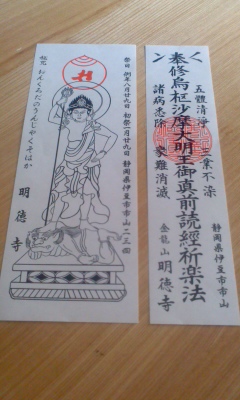 五體清浄
業不染
静岡県伊豆市市山
奉修烏枢沙摩大明王御真前読經祈楽法
諸病悉除
難消滅
金龍山 明徳寺
祭日 例年八月廿九日 初祭一月廿九日 静岡県伊豆市市山二三四
おんくろだのうんじゃくそはか
明徳寺